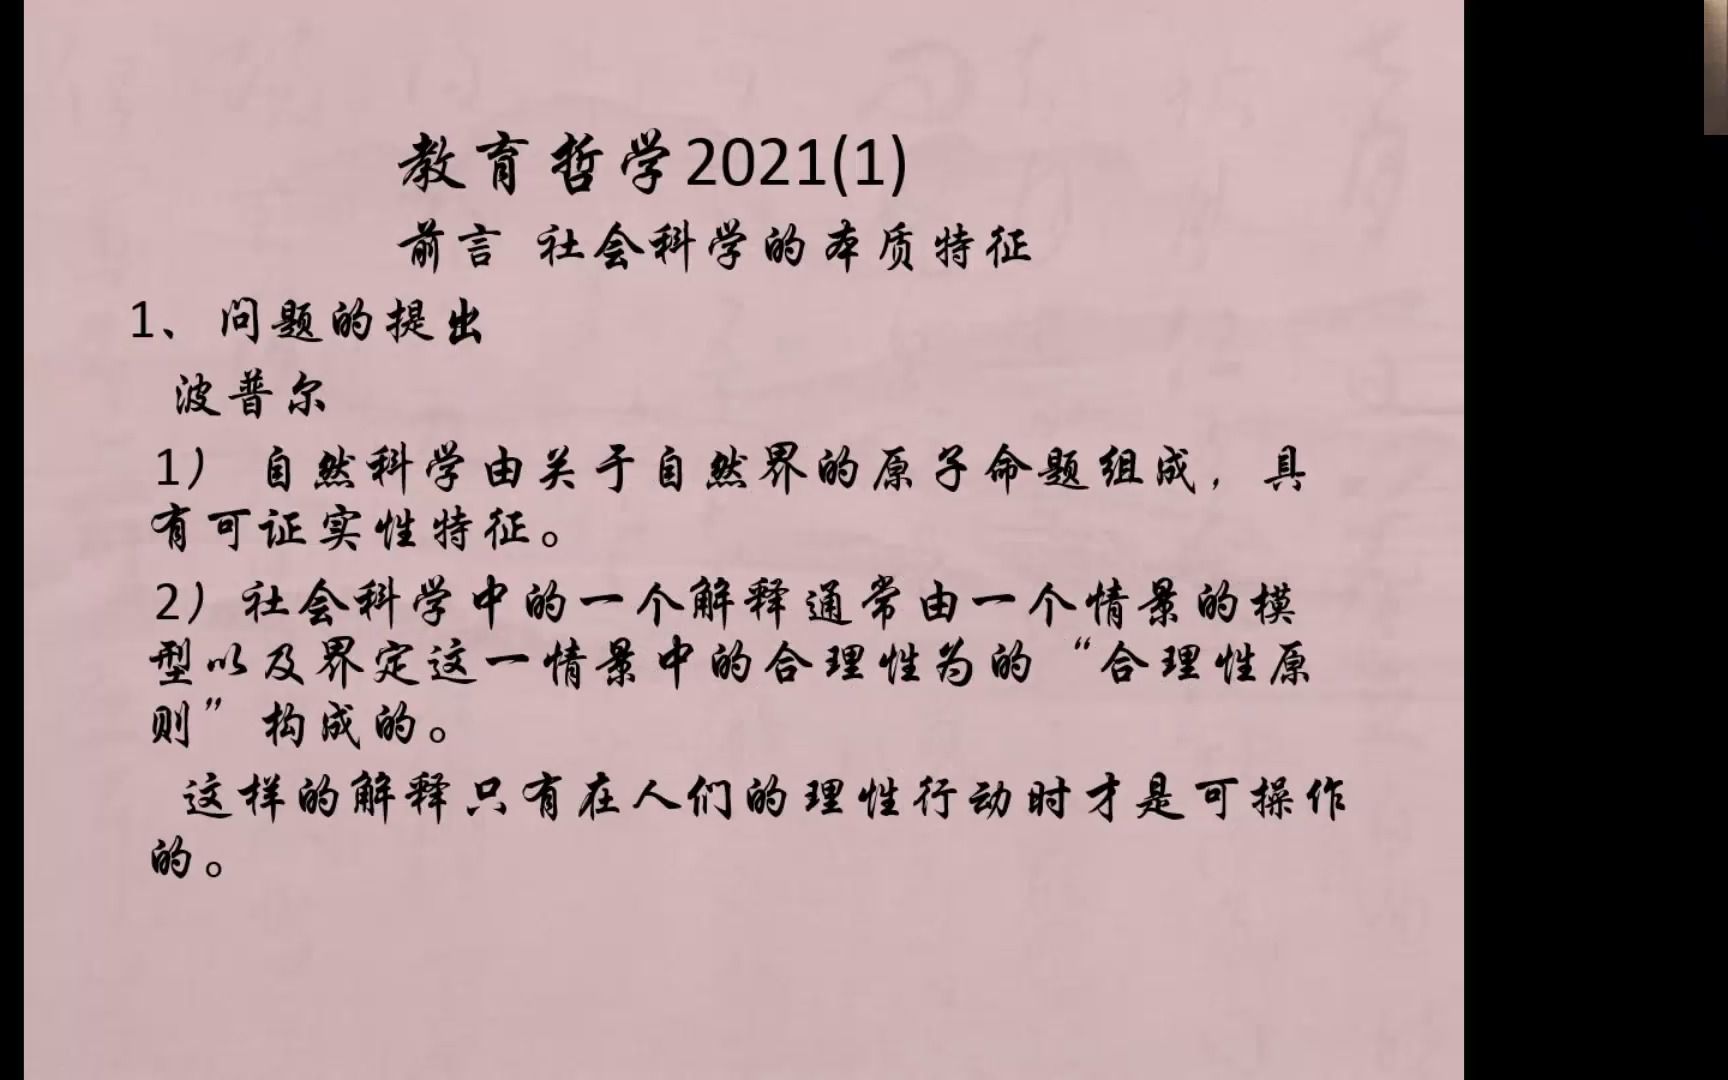 教育哲学2021(1)
前言 社会科学的本质特征
1、问题的提出
波普尔
1） 自然科学由关于自然界的原子命题组成，具
有可证实性特征。
2）社会科学中的一个解释通常由一个情景的模
型以及界定这一情景中的合理性为的“合理性原
则”构成的。
这样的解释只有在人们的理性行动时才是可操作
的。